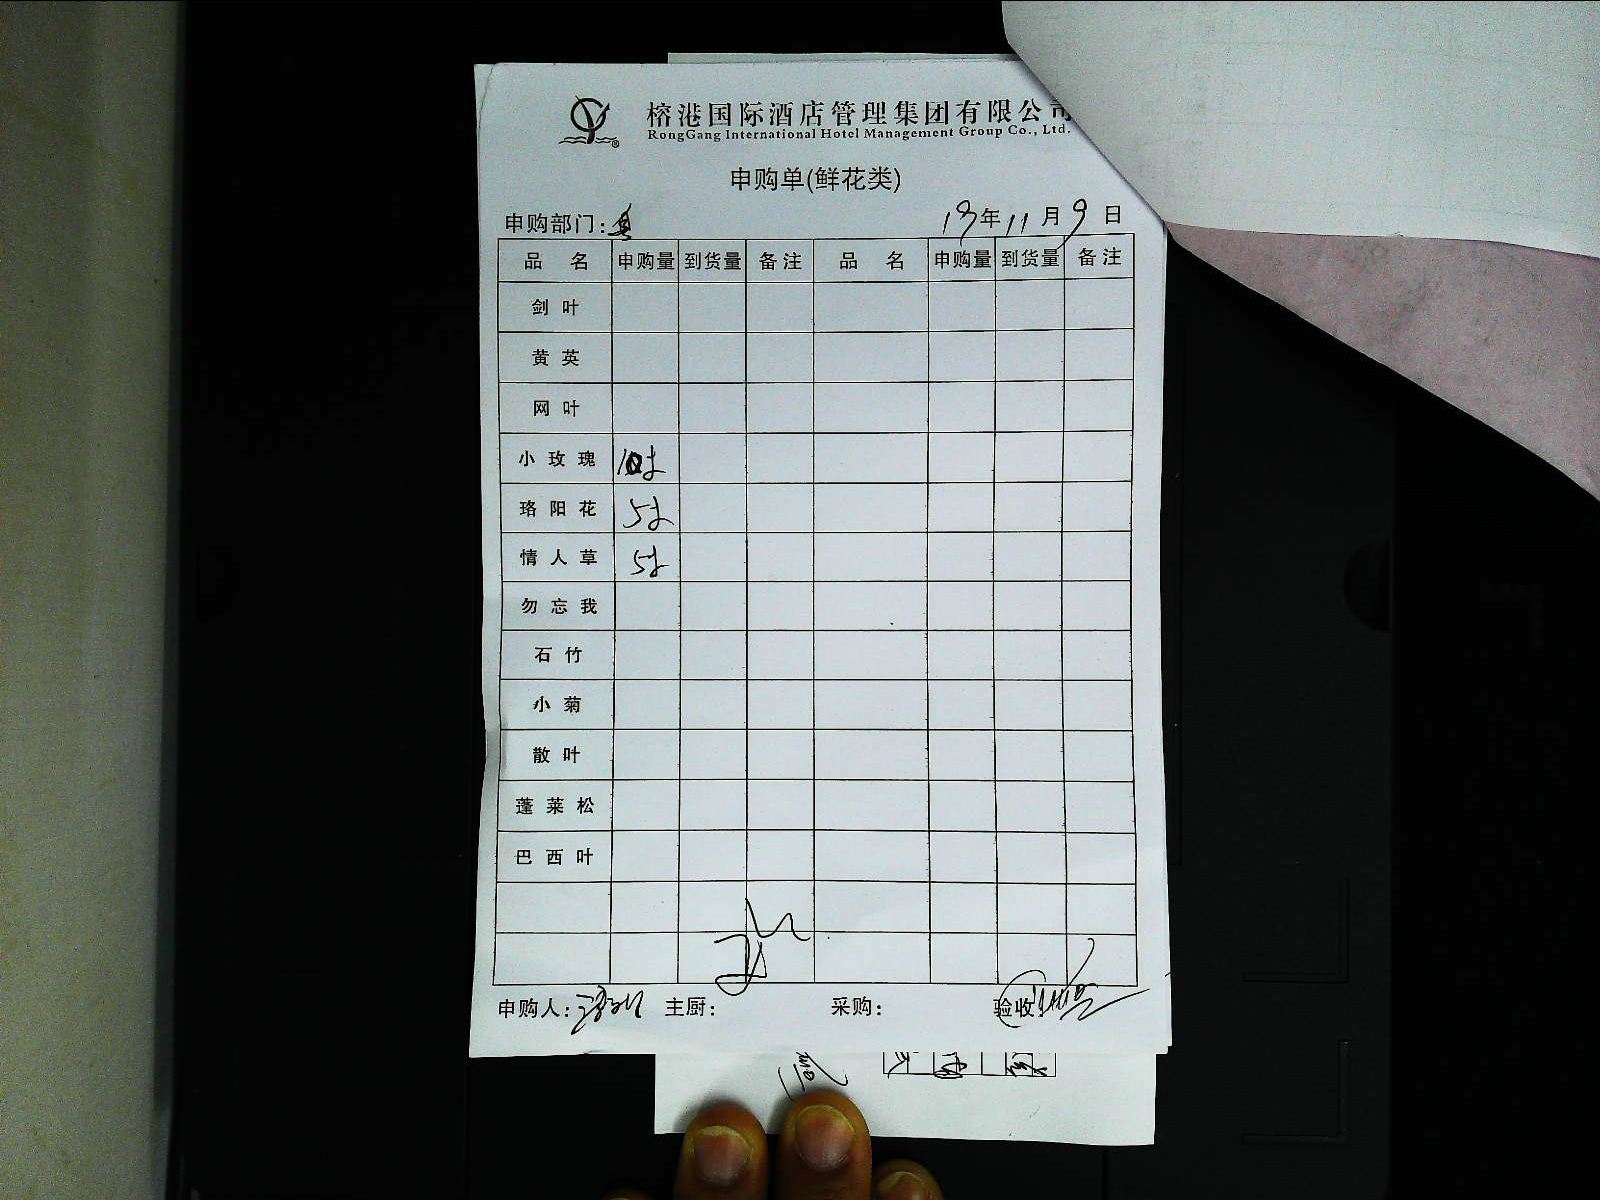 榕港国际酒店管理集团有限公司
RongGang International Hotel Management Group Co., Ltd.
申购单(鲜花类)
申购部门:
年 11 月 9 日
品 名 申购量 到货量 备注 品 名 申购量 到货量 备注
剑叶
黄英
网叶
小玫瑰 10扎
珞阳花 5扎
情人草 5扎
勿忘我
石竹
小菊
散叶
蓬莱松
巴西叶
申购人: 主厨: 采购: 验收: